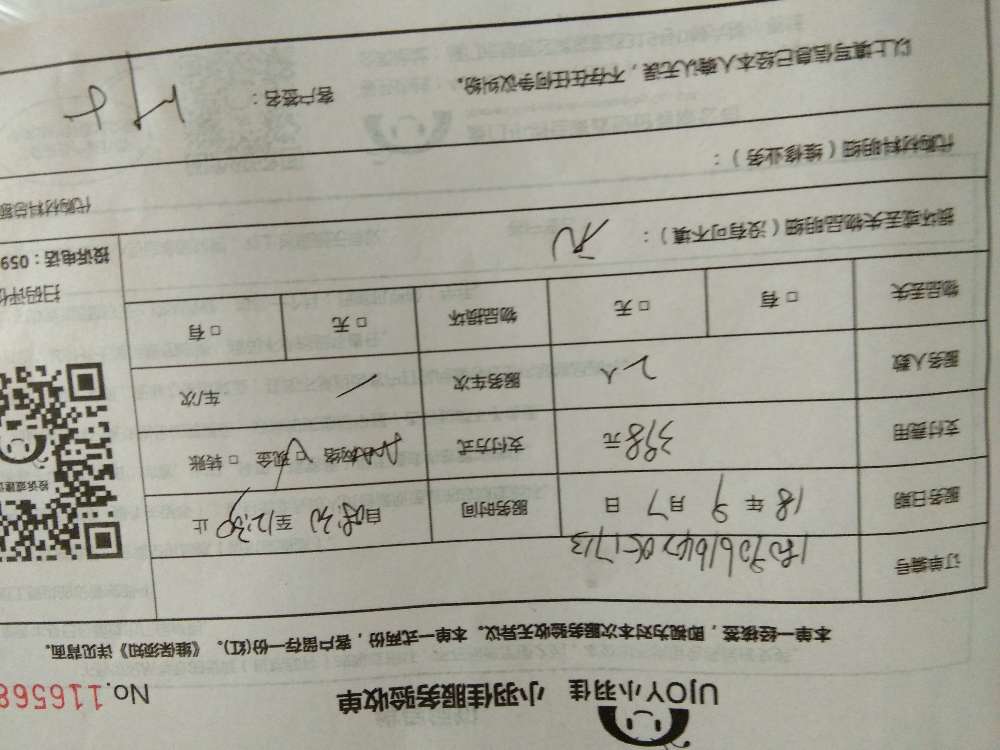 UJOY小羽佳 小羽佳服务验收单 No.116568
本单一经核签，即视为对本次服务验收无异议。本单一式两份，客户留存一份(红)。《维保须知》详见背面。
订单编号
服务日期 18 年 9 月 7 日 服务时间 自8:30 至12:30 止
支付费用 398 元 支付方式 网络 □ 现金 □ 转账
服务人数 2 人 服务车次 / 车/次
物品丢失 □ 有 □ 无 物品损坏 □ 无 □ 有
损坏或丢失物品明细（没有可不填）： 无
代购材料明细（维修业务）：
代购材料总额
以上填写信息已经本人确认无误，不存在任何争议纠纷。 客户签名：
投诉或建议
扫码评价
投诉电话：059